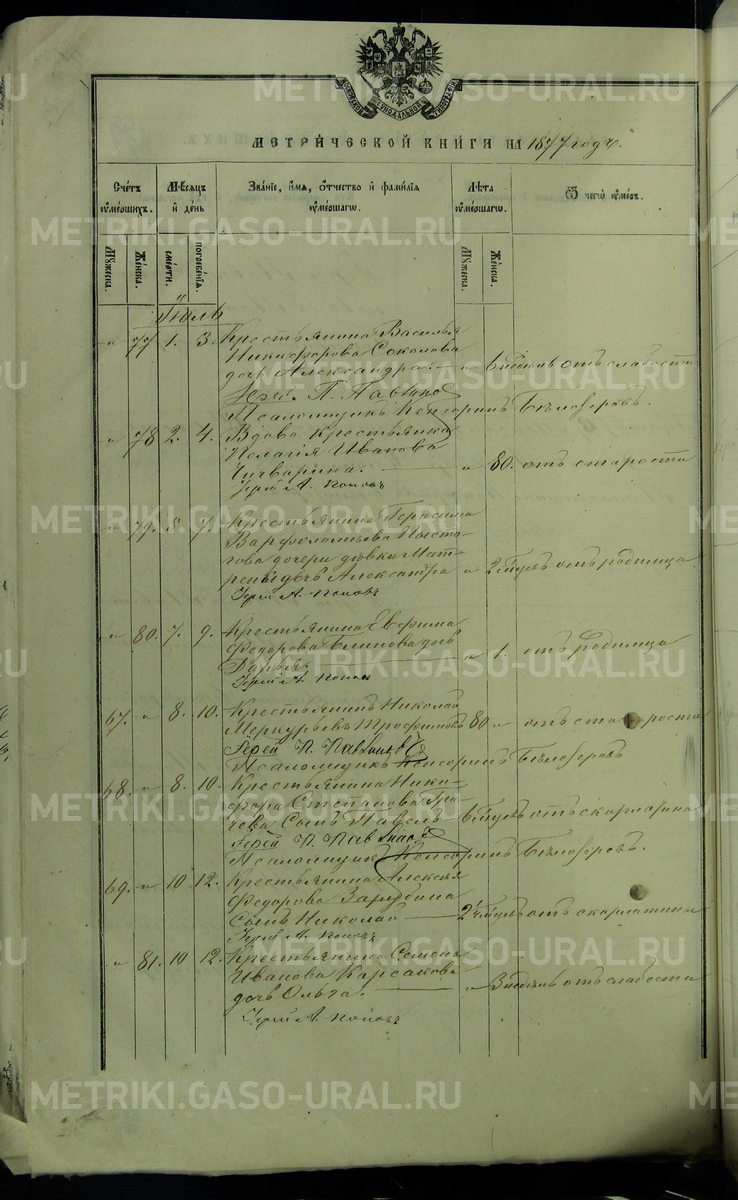 МЕТРИЧЕСКОЙ КНИГИ НА 1877 годъ.
Счетъ умершихъ.
Мѣсяцъ и день
Званіе, имя, отчество и фамилія умершаго.
Лѣта умершаго.
Ѿ чего умеръ.
Мужеска.
Женска.
смерти.
погребенія.
Мужеска.
Женска.
Іюль
" 77 1. 3. Крестьянина Василья
Никифорова Соколова
дочь Александра. — " 6 недѣль отъ слабости
Іерей. П.
Псаломщикъ Кенсоринъ Бѣлозеровъ.
" 78 2. 4. Вдова крестьянка
Пелагія Иванова
— " 80. отъ старости
Іерей А. Поповъ
" 79. 5. 7. Крестьянина Герасима
Варфоломѣева
дочери дѣвки Мат-
рены дочь Александра " 2 мѣс отъ родимца
Іерей А. Поповъ
" 80. 7. 9. Крестьянина Евфима
Федорова Блинова дочь
Дарья — " 1. отъ родимца
Іерей А. Поповъ
67. " 8. 10. Крестьянинъ Николай
Меркурьевъ Трофимовъ 80 " отъ старости
Іерей П.
Псаломщикъ Кенсоринъ Бѣлозеровъ
68. " 8. 10. Крестьянина Ники-
фора Степанова
Сынъ Павелъ 6 мѣс отъ скарлатины
Іерей П.
Псаломщикъ Кенсоринъ Бѣлозеровъ.
69. " 10 12. Крестьянина Алексѣя
Федорова Зарубина
Сынъ Николай — 2½ отъ скарлатины
Іерей А. Поповъ
" 81. 10 12. Крестьянина Семена
Иванова Карсакова
дочь Ольга. — " 3 недѣль отъ слабости
Іерей А. Поповъ
METRIKI.GASO-URAL.RU